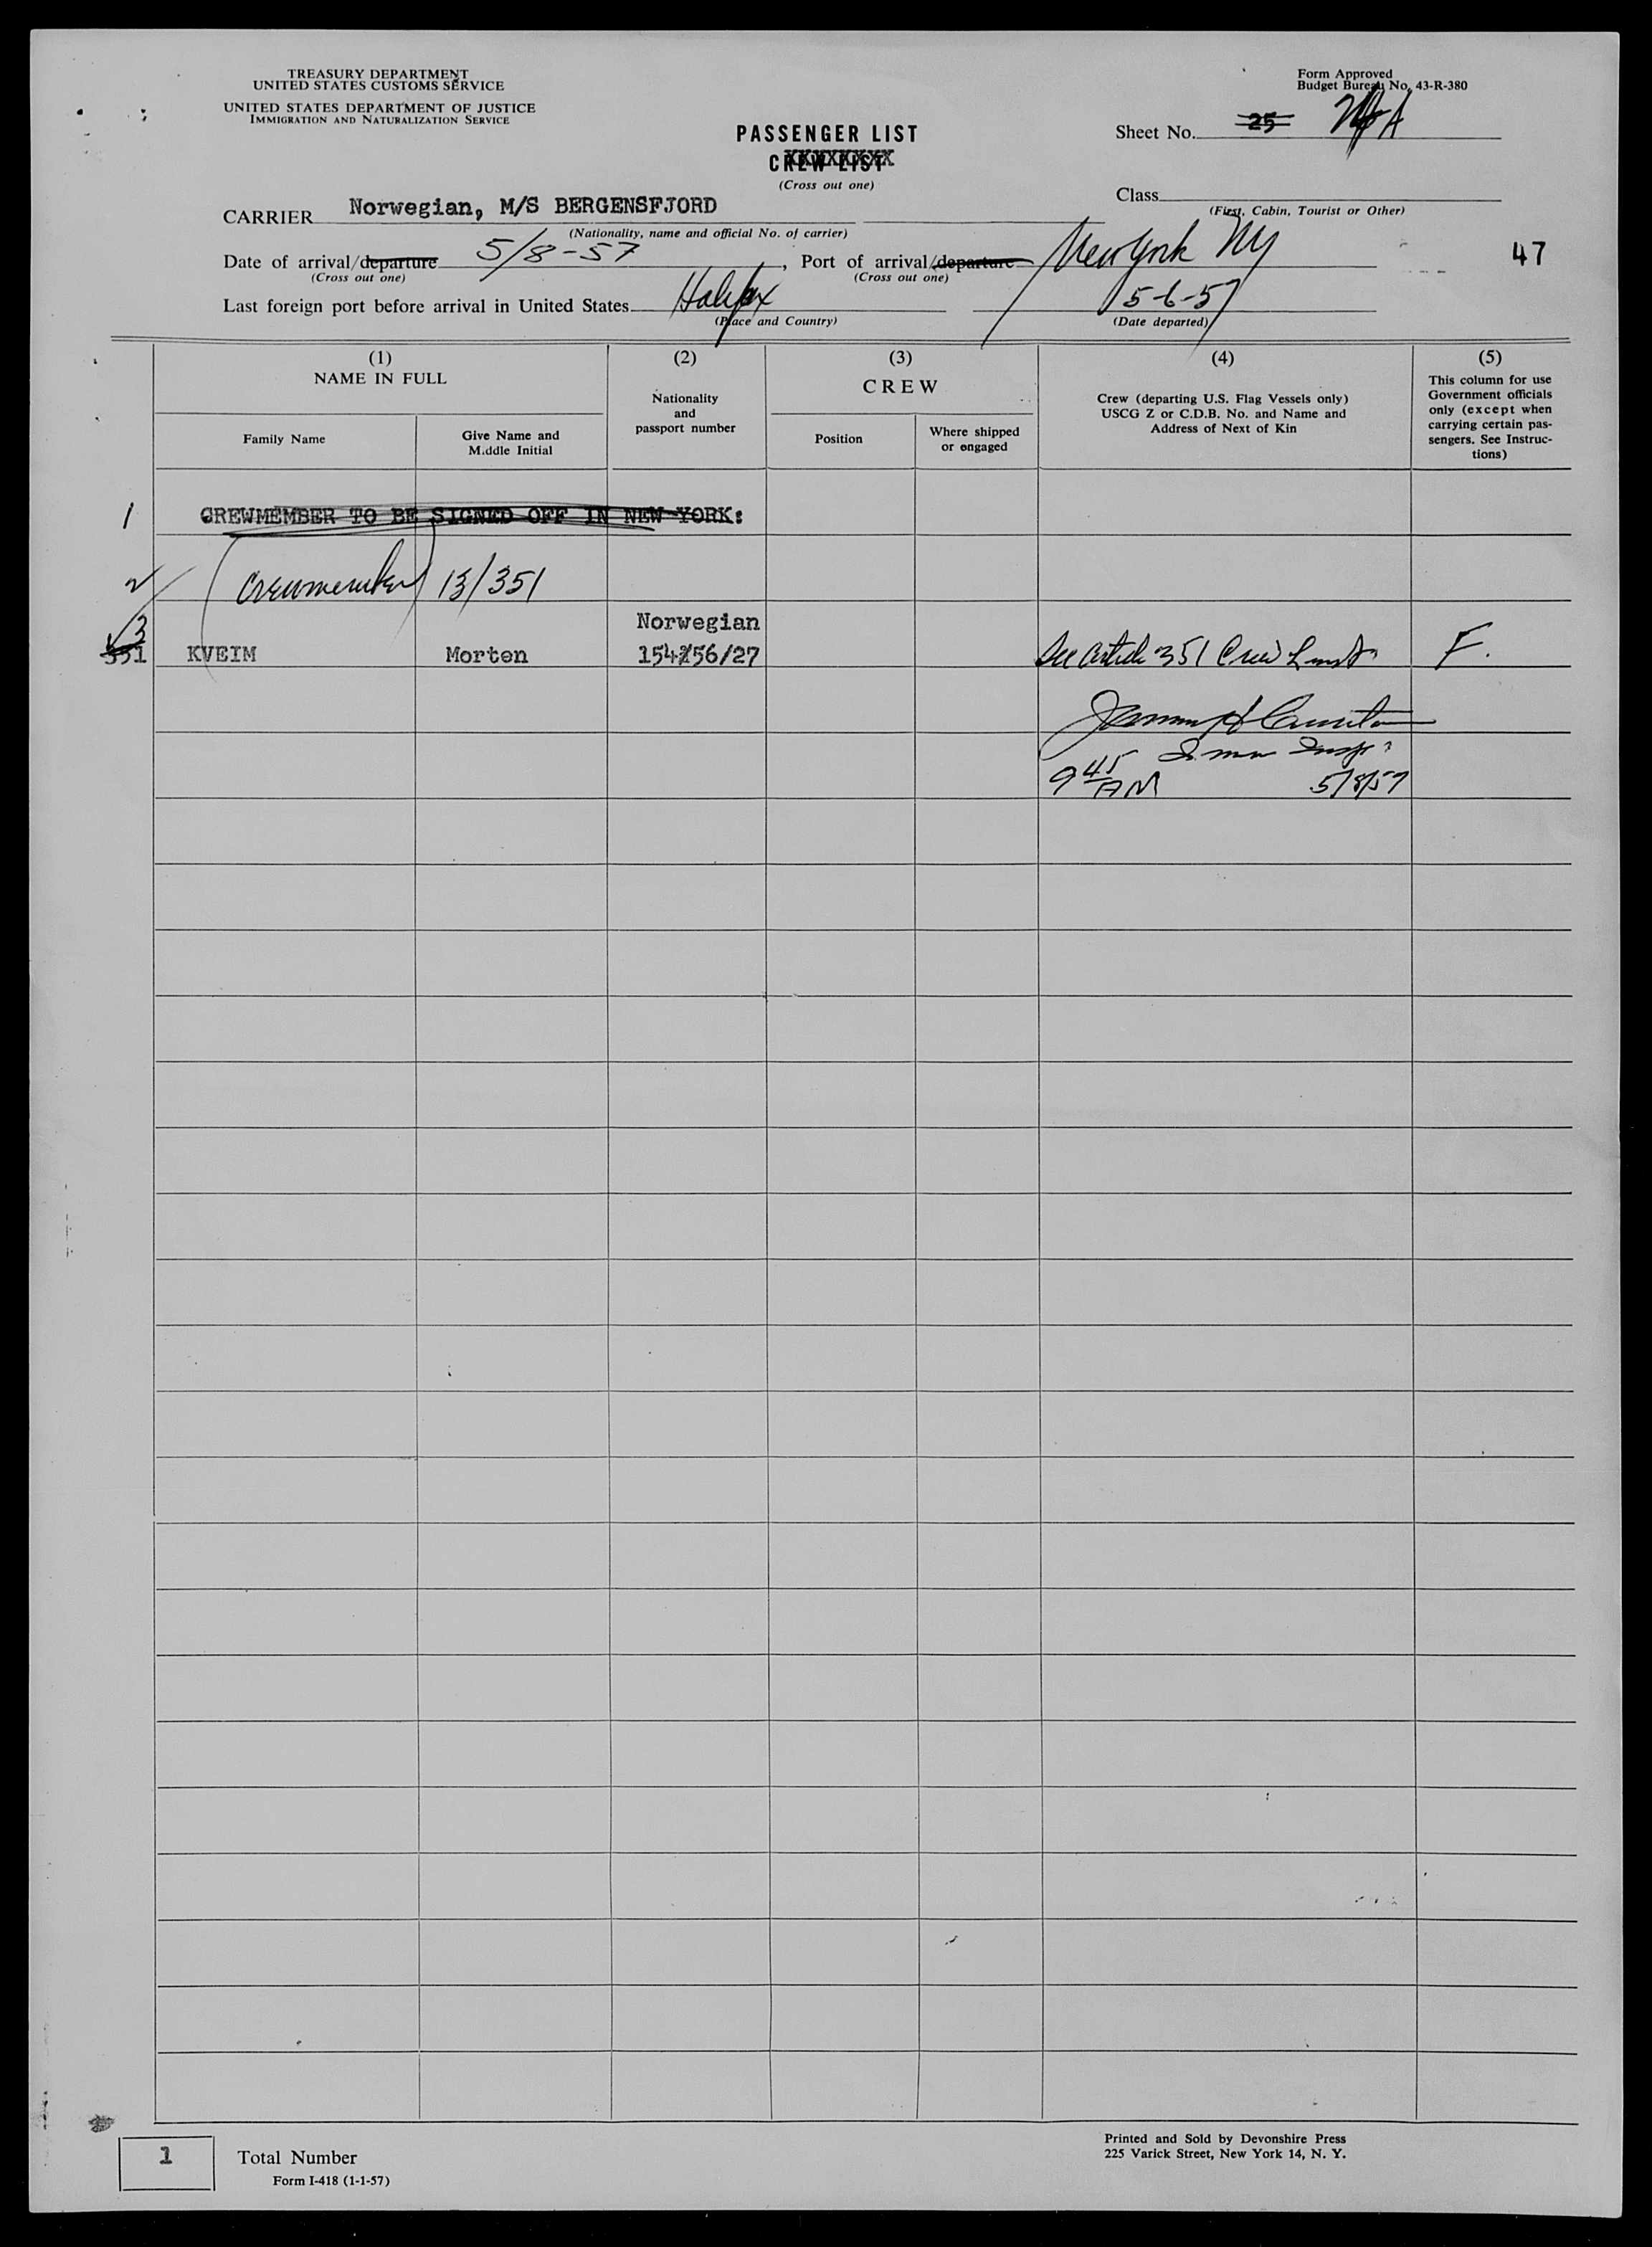 TREASURY DEPARTMENT
UNITED STATES CUSTOMS SERVICE
UNITED STATES DEPARTMENT OF JUSTICE
IMMIGRATION AND NATURALIZATION SERVICE
Form Approved
Budget Bureau No. 43-R-380
PASSENGER LIST
CREW LIST
(Cross out one)
Sheet No. 25
Class
(First, Cabin, Tourist or Other)
CARRIER Norwegian, M/S BERGENSFJORD
(Nationality, name and official No. of carrier)
Date of arrival/departure 5/8-57, Port of arrival/departure New York NY
(Cross out one) (Cross out one)
47
Last foreign port before arrival in United States Halifax 5-6-57
(Place and Country) (Date departed)
(1) (2) (3) (4) (5)
NAME IN FULL
Family Name
Give Name and
Middle Initial
Nationality
and
passport number
CREW
Position
Where shipped
or engaged
Crew (departing U.S. Flag Vessels only)
USCG Z or C.D.B. No. and Name and
Address of Next of Kin
This column for use
Government officials
only (except when
carrying certain pas-
sengers. See Instruc-
tions)
1 CREWMEMBER TO BE SIGNED OFF IN NEW YORK:
2 Crewmember 13/351
3
351 KVEIM Morten Norwegian
154256/27 See article 351 Crew F.
9 45 AM 5/8/57
1 Total Number
Form I-418 (1-1-57)
Printed and Sold by Devonshire Press
225 Varick Street, New York 14, N. Y.